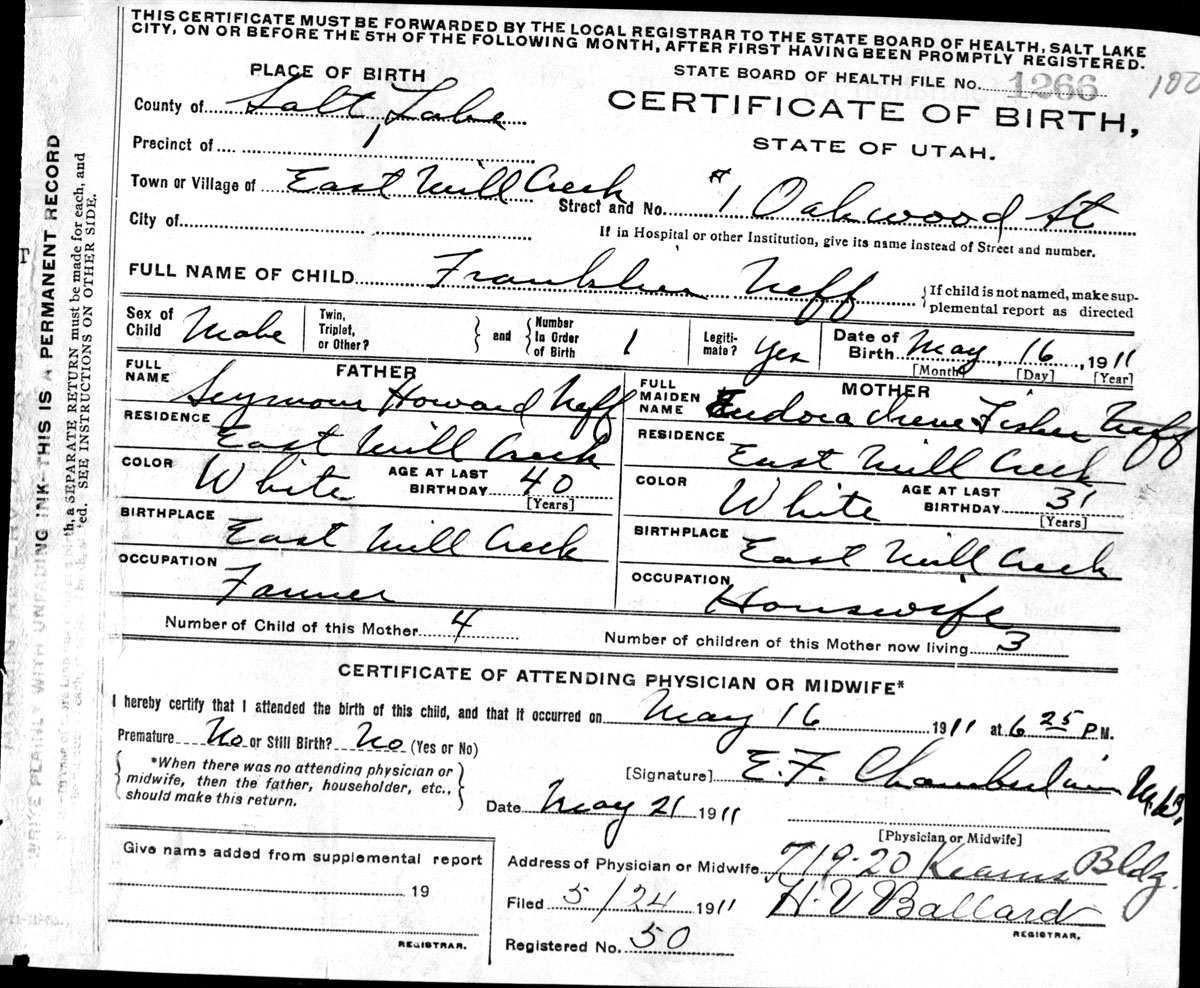 THIS CERTIFICATE MUST BE FORWARDED BY THE LOCAL REGISTRAR TO THE STATE BOARD OF HEALTH, SALT LAKE
CITY, ON OR BEFORE THE 5TH OF THE FOLLOWING MONTH, AFTER FIRST HAVING BEEN PROMPTLY REGISTERED.
PLACE OF BIRTH
STATE BOARD OF HEALTH FILE No. 1266
County of Salt Lake
CERTIFICATE OF BIRTH,
STATE OF UTAH.
Precinct of
Town or Village of East Mill Creek
Street and No. #1 Oakwood St
City of
If in Hospital or other Institution, give its name instead of Street and number.
FULL NAME OF CHILD Franklin Neff
{If child is not named, make sup-
plemental report as directed
Sex of Child Male
Twin, Triplet, or Other?
and
Number In Order of Birth 1
Legiti-mate? Yes
Date of Birth May 16, 1911
[Month] [Day] [Year]
FATHER
FULL NAME Seymour Howard Neff
RESIDENCE East Mill Creek
COLOR White AGE AT LAST BIRTHDAY 40
[Years]
BIRTHPLACE East Mill Creek
OCCUPATION Farmer
MOTHER
FULL MAIDEN NAME Eudora Irene Fisher Neff
RESIDENCE East Mill Creek
COLOR White AGE AT LAST BIRTHDAY 31
[Years]
BIRTHPLACE East Mill Creek
OCCUPATION Housewife
Number of Child of this Mother 4
Number of children of this Mother now living 3
CERTIFICATE OF ATTENDING PHYSICIAN OR MIDWIFE*
I hereby certify that I attended the birth of this child, and that it occurred on May 16 1911 at 6 25 P M.
Premature No or Still Birth? No (Yes or No)
*When there was no attending physician or
midwife, then the father, householder, etc.,
should make this return.
[Signature] E. F. Chamberlain M.D.
Date May 21 1911
[Physician or Midwife]
Give name added from supplemental report
19
REGISTRAR.
Address of Physician or Midwife 719-20 Kearns Bldg.
Filed 5/24 1911 H. V Ballard
REGISTRAR.
Registered No. 50
WRITE PLAINLY WITH UNFADING INK—THIS IS A PERMANENT RECORD
a SEPARATE RETURN must be made for each, and
SEE INSTRUCTIONS ON OTHER SIDE.